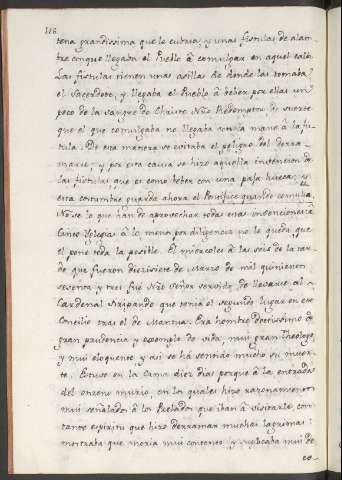 116
tena grandissima que le cubria, y unas fistulas de alam-
bre conque llegaba el Pueblo â comulgar en aquel caliz.
Las fistulas tienen unas asillas de donde las tomaba
el Sacerdote, y llegaba el Pueblo â beber por ellas un
poco de la sangre de Christo Nro Redemptor de suerte
que el que comulgaba no llegaba con la mano â la fis-
tula. De esta manera se evitaba el peligro del derra-
marse, y por esta causa se hizo aquella invencion de
las fistulas, que es como beber con una paja hueca; y
esta costumbre guarda ahora el Pontifice quando comulga.
No se lo que han de aprovechar todas estas invenciones â
tantas Yglesias â lo menos por diligencia no le queda, que
el pone toda la posible. El miercoles â las seis de la tar-
de que fueron diezisiete de Marzo de mil quinientos
sesenta y tres fué Nro Señor servido de llevarse al
Cardenal Seripando que tenia el segundo lugar en este
Concilio tras el de Mantua. Era hombre doctissimo de
gran prudencia y exemplo de vida, mui gran Theologo,
y mui eloquente y asi se há sentido mucho su muer-
te. Estuvo en la Cama diez dias porque â la entrada
del onzeno murio, en los quales hizo razonamientos
mui señalados â los Prelados que iban â visitarle, con
tanto espiritu que hizo derramar muchas lagrimas:
mostraba que moria mui contento y suplicaba mui de